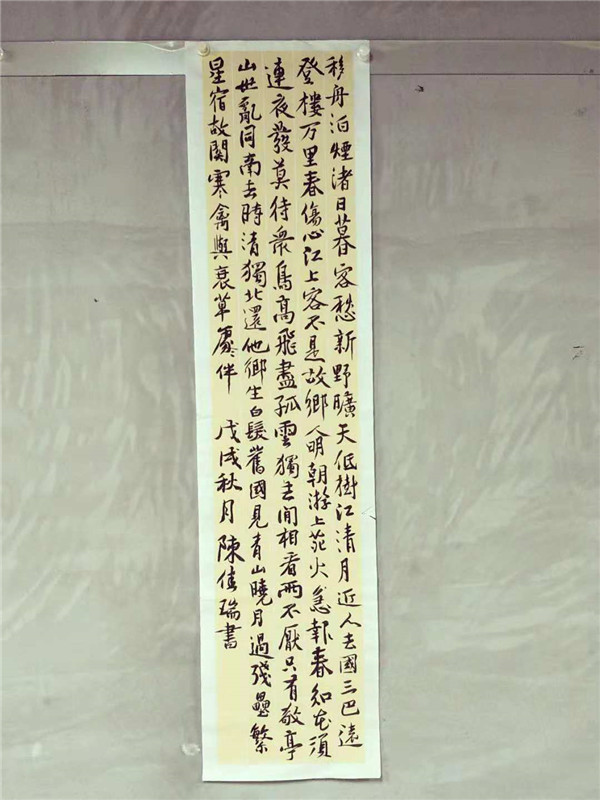 移舟泊煙渚日暮客愁新野曠天低樹江清月近人去國三巴遠
登樓万里春傷心江上客不是故鄉人明朝游上苑火急報春知花須
連夜發莫待衆鳥高飛盡孤雲獨去閒相看兩不厭只有敬亭
山世亂同南去時清獨北還他鄉生白髮舊國見青山曉月過殘壘繁
星宿故關寒禽與衰草處伴 戊戌秋月陳佳瑞書